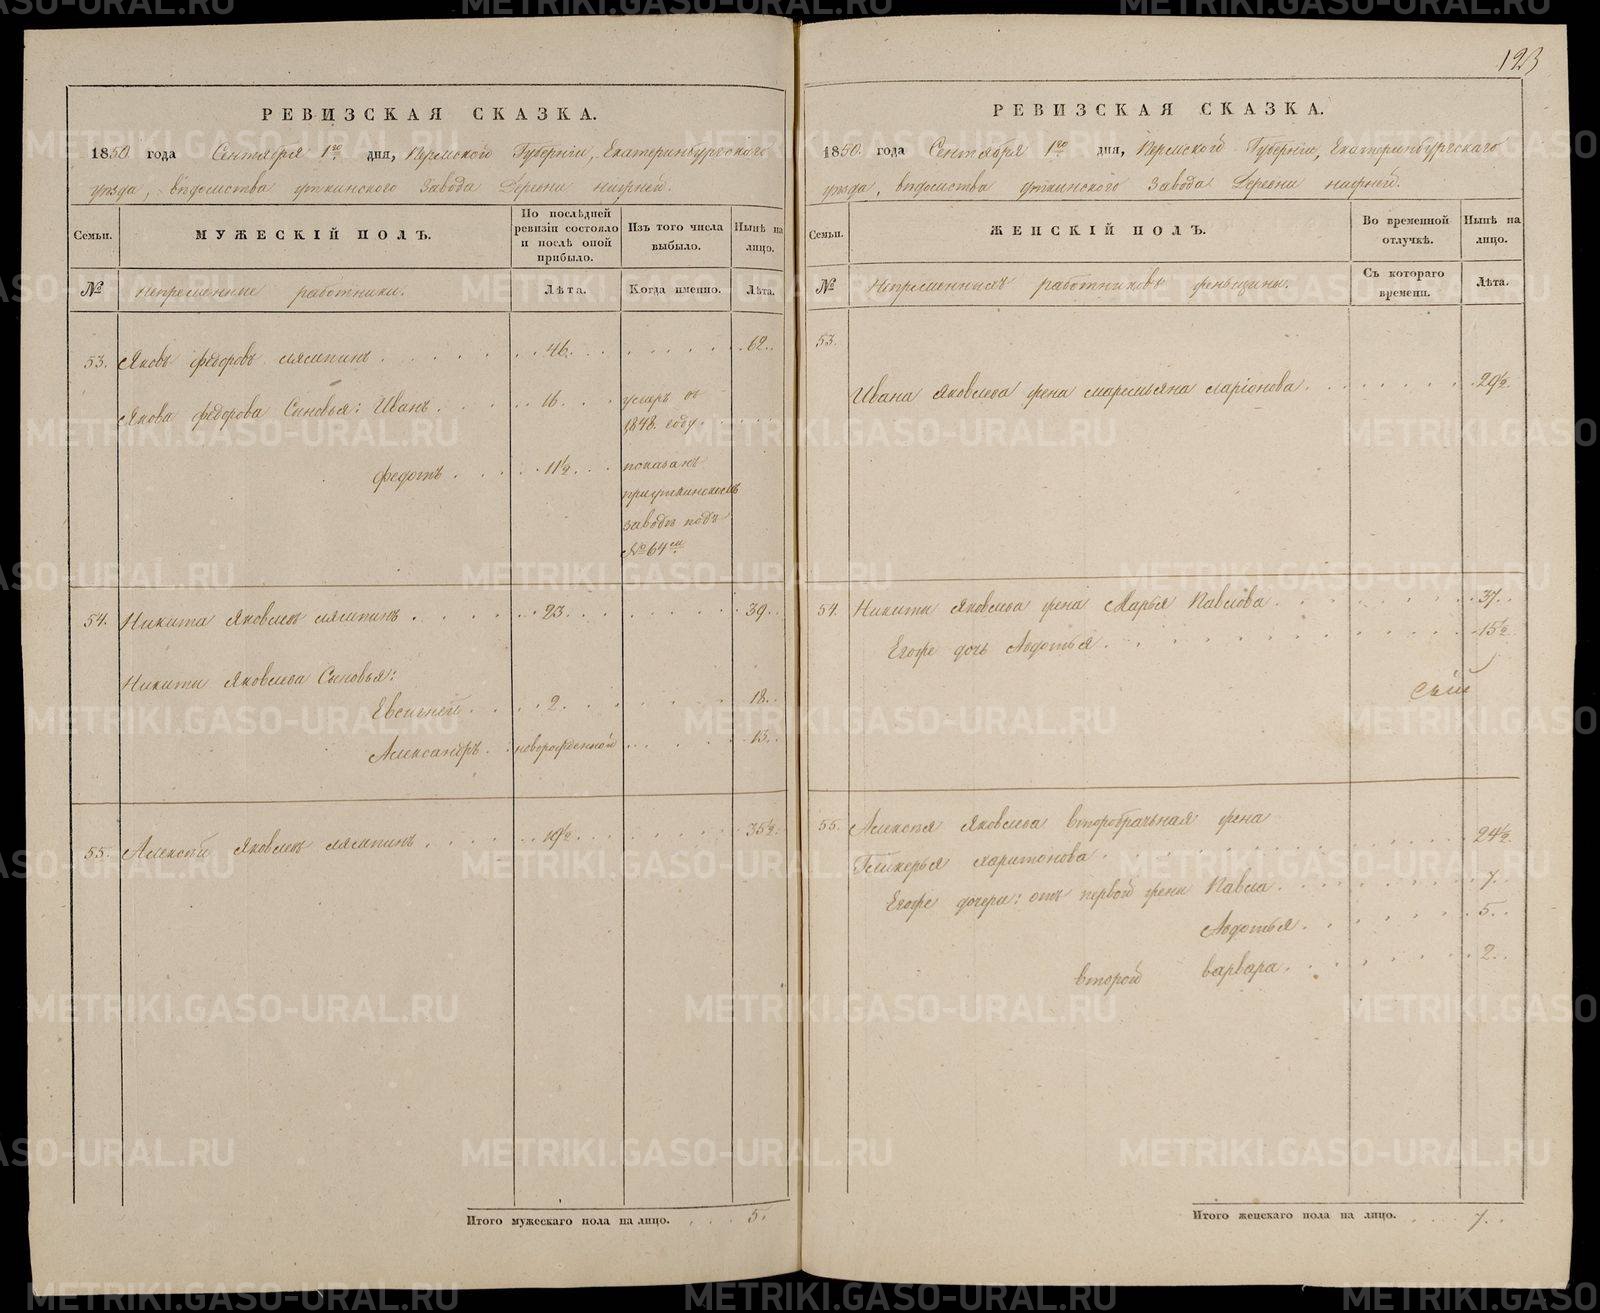 123
РЕВИЗСКАЯ СКАЗКА.
1850 года Сентября 1го дня, Пермской Губернiи, Екатеринбургскаго
уѣзда, вѣдомства уткинского завода Деревни нижней.
Семьи.
МУЖЕСКIЙ ПОЛЪ.
По послѣдней ревизiи состояло и послѣ оной прибыло.
Изъ того числа выбыло.
Нынѣ на лицо.
№
Непременные работники.
Лѣта.
Когда именно.
Лѣта.
53. Яковъ федоровъ лямпинъ 46. 62.
Якова федорова Сыновья: Иванъ 16. умеръ въ
1848. году
федотъ 11½ показанъ
приуткинскомъ
заводѣ подъ
№ 64м
54. Никита Яковлев лямпинъ 23. 39.
Никиты Яковлева Сыновья:
Евсигней 2. 18.
Александръ новорожденной 13.
55. Алексѣй Яковлев лямпинъ 19½ 35½
Итого мужескаго пола на лицо. 5.
РЕВИЗСКАЯ СКАЗКА.
1850. года Сентября 1го дня, Пермской Губернiи, Екатеринбургскаго
уѣзда, вѣдомства уткинского завода Деревни нижней.
Семьи.
ЖЕНСКIЙ ПОЛЪ.
Во временной отлучкѣ.
Нынѣ на лицо.
№
Непременныхъ работниковъ женщины.
Съ котораго времени.
Лѣта.
53.
Ивана Яковлева жена маремьяна ларiонова 29½
54. Никиты Яковлева жена Марья Павлова 37.
Егоже дочь Авдотья 15½
55. Алексѣя Яковлева второбрачная жена
Гликерья харитонова 24½
Егоже дочери: отъ первой жены Павла 7.
Авдотья 5.
второй варвара 2.
Итого женскаго пола на лицо. 7.
METRIKI.GASO-URAL.RU